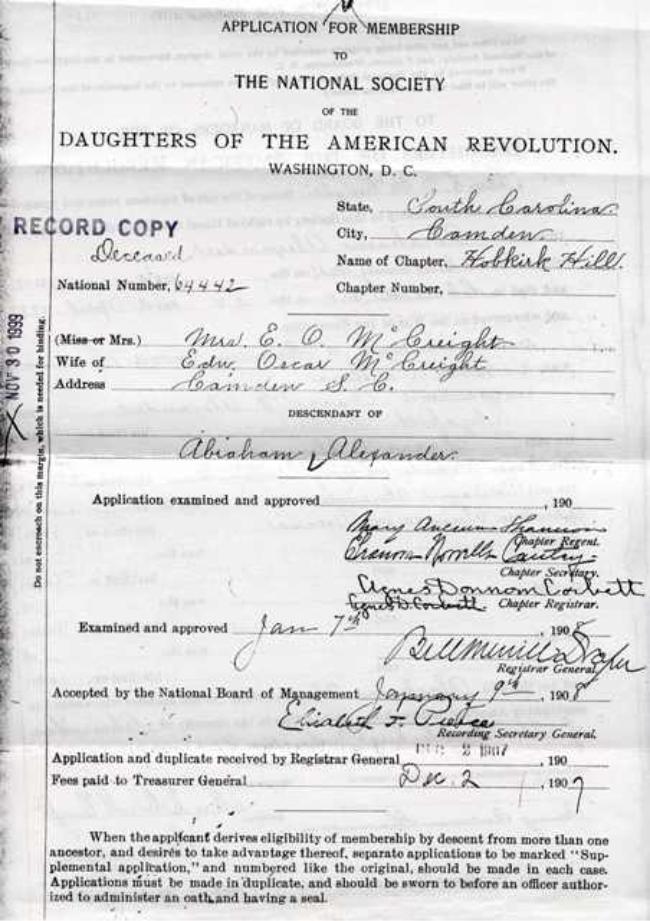 APPLICATION FOR MEMBERSHIP
TO
THE NATIONAL SOCIETY
OF THE
DAUGHTERS OF THE AMERICAN REVOLUTION.
WASHINGTON, D. C.
State, South Carolina.
RECORD COPY
City, Camden.
Deceased
Name of Chapter, Hobkirk Hill.
National Number, 64442
Chapter Number,
NOV 30 1999
Do not encroach on this margin, which is needed for binding.
(Miss or Mrs.) Mrs. E. O. McCreight
Wife of Edw. Oscar McCreight
Address Camden S. C.
DESCENDANT OF
Abraham Alexander.
Application examined and approved , 190
Mary
Chapter Regent.
Chapter Secretary.
Agnes Donnom Corbett
Agnes D. Corbett Chapter Registrar.
Examined and approved Jan 7th 1908
Bell Merrill Draper
Registrar General.
Accepted by the National Board of Management January 9th, 1908
Elisabeth F. Pierce
Recording Secretary General.
Application and duplicate received by Registrar General DEC 2 1907 , 190
Fees paid to Treasurer General Dec. 2 , 1907
When the applicant derives eligibility of membership by descent from more than one
ancestor, and desires to take advantage thereof, separate applications to be marked "Sup-
plemental application," and numbered like the original, should be made in each case.
Applications must be made in duplicate, and should be sworn to before an officer author-
ized to administer an oath and having a seal.